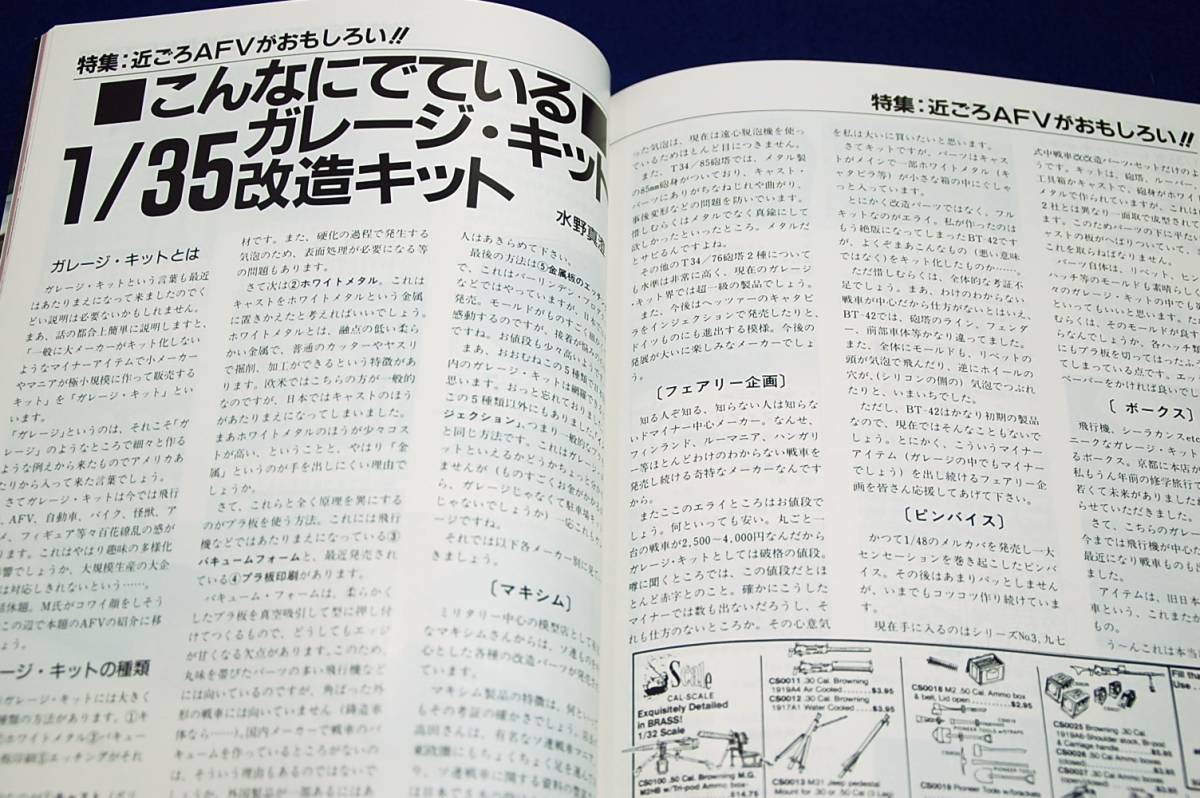 特集：近ごろAFVがおもしろい!!
■こんなにでている■
1/35ガレージ・キット
改造キット
水野真
ガレージ・キットとは
ガレージ・キットという言葉も最近
はあたりまえになって来ましたのでく
どい説明は必要ないかもしれません。
まあ、話の都合上簡単に説明しますと、
「一般に大メーカーがキット化しない
ようなマイナーアイテムで小メーカー
やマニアが極小規模に作って販売する
キット」を「ガレージ・キット」とい
います。
「ガレージ」というのは、それこそ「ガ
レージ」のようなところで細々と作る
ような例えから来たものでアメリカあ
たりから入って来た言葉でしょう。
さてガレージ・キットは今では飛行
、AFV、自動車、バイク、怪獣、ア
メ、フィギュア等々百花繚乱の感が
ります。これはやはり趣味の多様化
影響でしょうか、大規模生産の大企
は対応しきれないという……。
話休題。M氏がコワイ顔をしそう
この辺で本題のAFVの紹介に移
ょう。
ージ・キットの種類
ガレージ・キットには大きく
種類の方法があります。①キ
②ホワイトメタル③バキュー
板印刷⑤エッチングがそれ
材です。また、硬化の過程で発生する
気泡のため、表面処理が必要になる等
の問題もあります。
さて次は②ホワイトメタル。これは
キャストをホワイトメタルという金属
に置きかえたと考えればいいでしょう。
ホワイトメタルとは、融点の低い柔ら
かい金属で、普通のカッターやヤスリ
で掘削、加工ができるという特徴があ
ります。欧米ではこちらの方が一般的
なのですが、日本ではキャストのほう
があたりまえになってしまいました。
まあホワイトメタルのほうが少々コス
トが高い、ということと、やはり「金
属」というのが手を出しにくい理由で
しょうか。
さて、これらと全く原理を異にする
のがプラ板を使う方法。これには飛行
機などではあたりまえになっている③
バキュームフォームと、最近発売され
ている④プラ板印刷があります。
バキューム・フォームは、柔らかく
したプラ板を真空吸引して型に押し付
けてつくるもので、どうしてもエッジ
が甘くなる欠点があります。このため、
丸味を帯びたパーツの多い飛行機など
には向いているのですが、角ばった外
形の戦車には向いていません（鋳造車
体なら──)。国内メーカーで戦車のバ
キュームを作っているところがないの
は、そういう理由もあるのではないで
しょうか。外国製品が一部あるにはあ
人はあきらめて下さい。
最後の方法は⑤金属板のエッチン
で、これはバーリンデン・プロダ
などではやっていますが、日本
発売。モールドがものすごく細か
感動するのですが、接着が悩みの
ですね。お値段も少々高いようで
まあ、おおむねこの5種類で
内のガレージ・キットは網羅で
思います。おっと忘れておりました
この5種類以外にもありました
ジェクション。つまり一般的なプ
と同じ方法です。これはガレージ
ットといえるかどうかちょっと分か
ませんが（ものすごくお金がかか
ら、ガレージじゃなくて駐車場キ
じゃないでしょうか）一応これも
ージですね。
それでは以下各メーカー別に見て
きましょう。
〔マキシム〕
ミリタリー中心の模型店として
なマキシムさんからは、ソ連もの
心とした各種の改造パーツが発売
います。
マキシム製品の特徴は、何とい
もその考証の確かさでしょう。
高田さんは、有名なソ連戦車マニ
東欧圏にもちょくちょく足を運ん
り、ソ連戦車に関する資料の
特集：近ごろAFVがおもしろい!!
った気泡は、現在は遠心脱泡機を使っ
ているためほとんど目につきません。
また、T34／85砲塔では、メタル製
の85mm砲身がついており、キャスト・
パーツにありがちなねじれや曲がり、
事後変形などの問題を防いでいます。
惜しむらくはメタルでなく真鍮にして
欲しかったといったところ。メタルだ
とサビるんですよね。
その他のT34／76砲塔2種について
も水準は非常に高く、現在のガレージ
・キット界では超一級の製品でしょう。
また、今後はヘッツァーのキャタピ
ラをインジェクションで発売したりと、
ドイツものにも進出する模様。今後の
発展が大いに楽しみなメーカーでしょ
う。
〔フェアリー企画〕
知る人ぞ知る、知らない人は知らな
いドマイナー中心メーカー。なんせ、
フィンランド、ルーマニア、ハンガリ
ー等ほとんどわけのわからない戦車を
発売し続ける奇特なメーカーなんです
から。
またここのエライところはお値段で
しょう。何といっても安い。丸ごと一
台の戦車が2,500〜4,000円なんだから
ガレージ・キットとしては破格の値段。
噂に聞くところでは、この値段だとほ
とんど赤字とのこと。確かにこうした
マイナーでは数も出ないだろうし、そ
れも仕方のないところか。その心意気
を私は大いに買いたいと思います。
さてキットですが、パーツはキャス
トがメインで一部ホワイトメタル（キ
ャタピラ等）が小さな箱の中にぐしゃ
っと入っています。
とにかく改造パーツではなく、フル
キットなのがエライ。私が作ったのは
もう絶版になってしまったBT-42です
が、よくぞまあこんなもの（悪い意味
ではなく）をキット化したものか……。
ただ惜しむらくは、全体的な考証不
足でしょう。まあ、わけのわからない
戦車が中心だから仕方がないとはいえ、
BT-42では、砲塔のライン、フェンダ
ー、前部車体等かなり違ってました。
また、全体にモールドも、リベットの
頭が気泡で飛んだり、逆にホイールの
穴が、(シリコンの側の）気泡でつぶれ
たりと、いまいちでした。
ただし、BT-42はかなり初期の製品
なので、現在ではそんなこともないで
しょう。とにかく、こういうマイナー
アイテム（ガレージの中でもマイナー
でしょう）を出し続けるフェアリー企
画を皆さん応援してあげて下さい。
〔ピンバイス〕
かつて1/48のメルカバを発売し一大
センセーションを巻き起こしたピンバ
イス。その後はあまりパッとしません
が、いまでもコツコツ作り続けていま
す。
現在手に入るのはシリーズNo.3、九七
式中戦車改改造パーツ・セットだけのよ
うです。キットは、砲塔、ルーバー、
工具箱がキャストで、砲身がホワイト
メタルで作られていますが、これは
2社とは異なり一面取で成型されて
す。このためパーツの下に平たい
ャストの板がへばりついていて、
これを取らねばなりません。
パーツ自体は、リベット、ヒン
ハッチ等のモールドも素晴らしく
々のガレージ・キットの中でも
といってもいいと思います。
むらくは、そのモールドが良す
らなんでしょうか、各ハッチ類
にもプラ板を切ってはったふ
てしまっている点です。エッ
ペーパーをかければ良いでし
〔ボークス〕
飛行機、シーラカンスetc
ニークなガレージ・キット
るボークス。京都に本店が
私もうん年前の修学旅行で
若くて未来がありました
らせていただきました。
さて、こちらのガレー
今までは飛行機が中心
最近になり戦車ものも
ました。
アイテムは、旧日本
車という、これまた
もの。
う〜んこれは本当
Scale
CAL-SCALE
Exquisitely Detailed
in BRASS!
1/32 Scale
CS0100 .50 Cal. Browning M.G.
M2HB w/Tri-pod Ammo box
$14.75
CS0011 .30 Cal. Browning
1919A4 Air Cooled $3.95
CS0012 .30 Cal. Browning
1917A1 Water Cooled $3.95
CS0013 M31 Jeep pedestal
Mount for .30 or .50 Cal (3 Leg)
CS0018 M2 .50 Cal. Ammo box
& belt, Lid open $2.95
CS0019 Pioneer Tools w/brackets
CS0025 Browning .30 Cal.
1919A6-Shoulder stock, Bi-pod
& Carriage handle
CS0026 .50 Cal Ammo boxes
(closed)
CS0027 .30 Cal Ammo boxes
Fill tha
Use